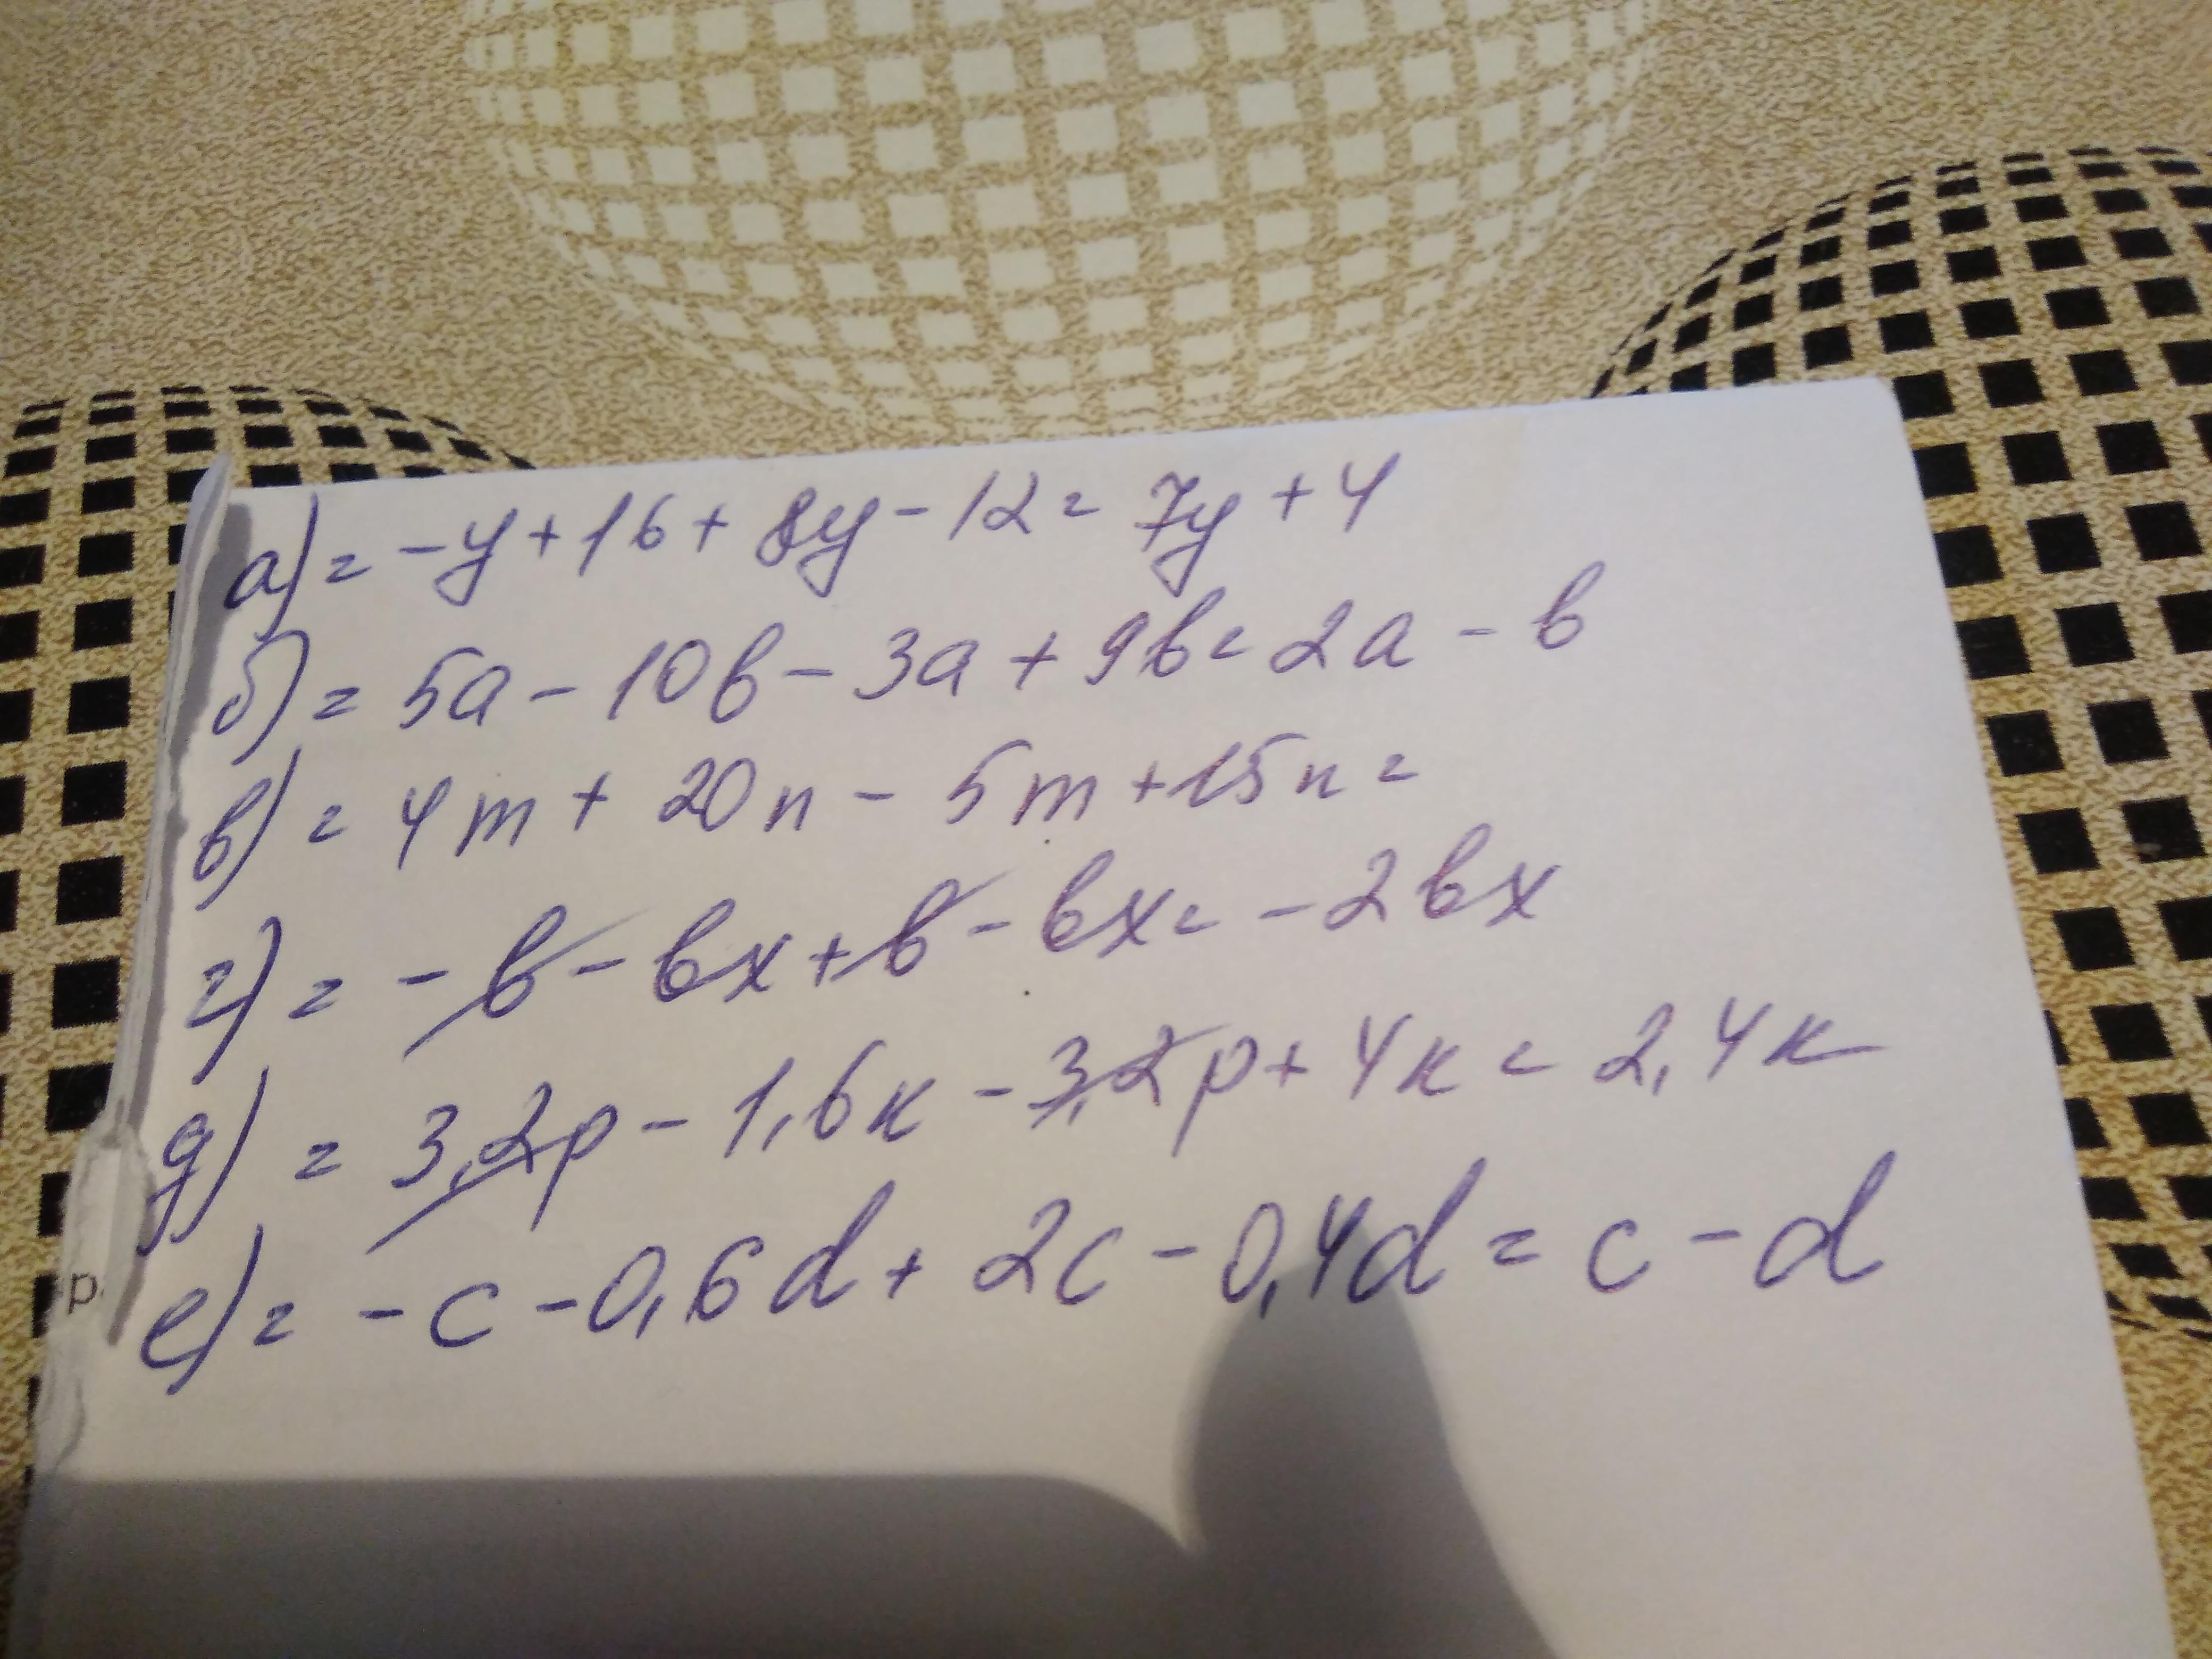 а) = -y + 16 + 8y - 12 = 7y + 4
б) = 5a - 10b - 3a + 9b = 2a - b
в) = 4m + 20n - 5m + 15n =
г) = - b - bx + b - bx = - 2bx
д) = 3,2p - 1,6к - 3,2p + 4к = 2,4к
е) = - c - 0,6d + 2c - 0,4d = c - d
р.